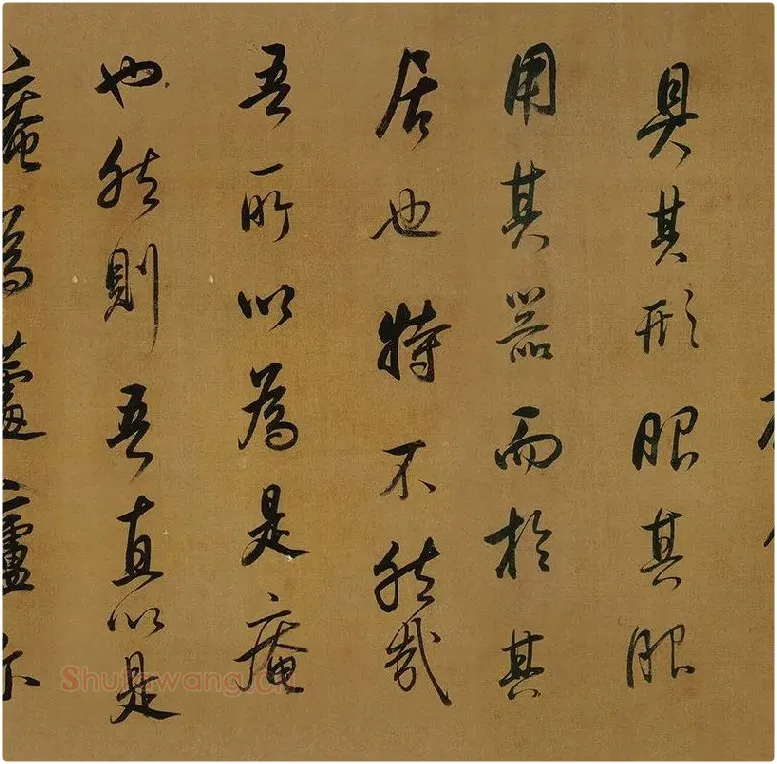 具其形服其服
用其器而於其
居也特不然哉
吾所以為是庵
也然則吾直以是
庵為蘧廬尓
Shufawang.cn